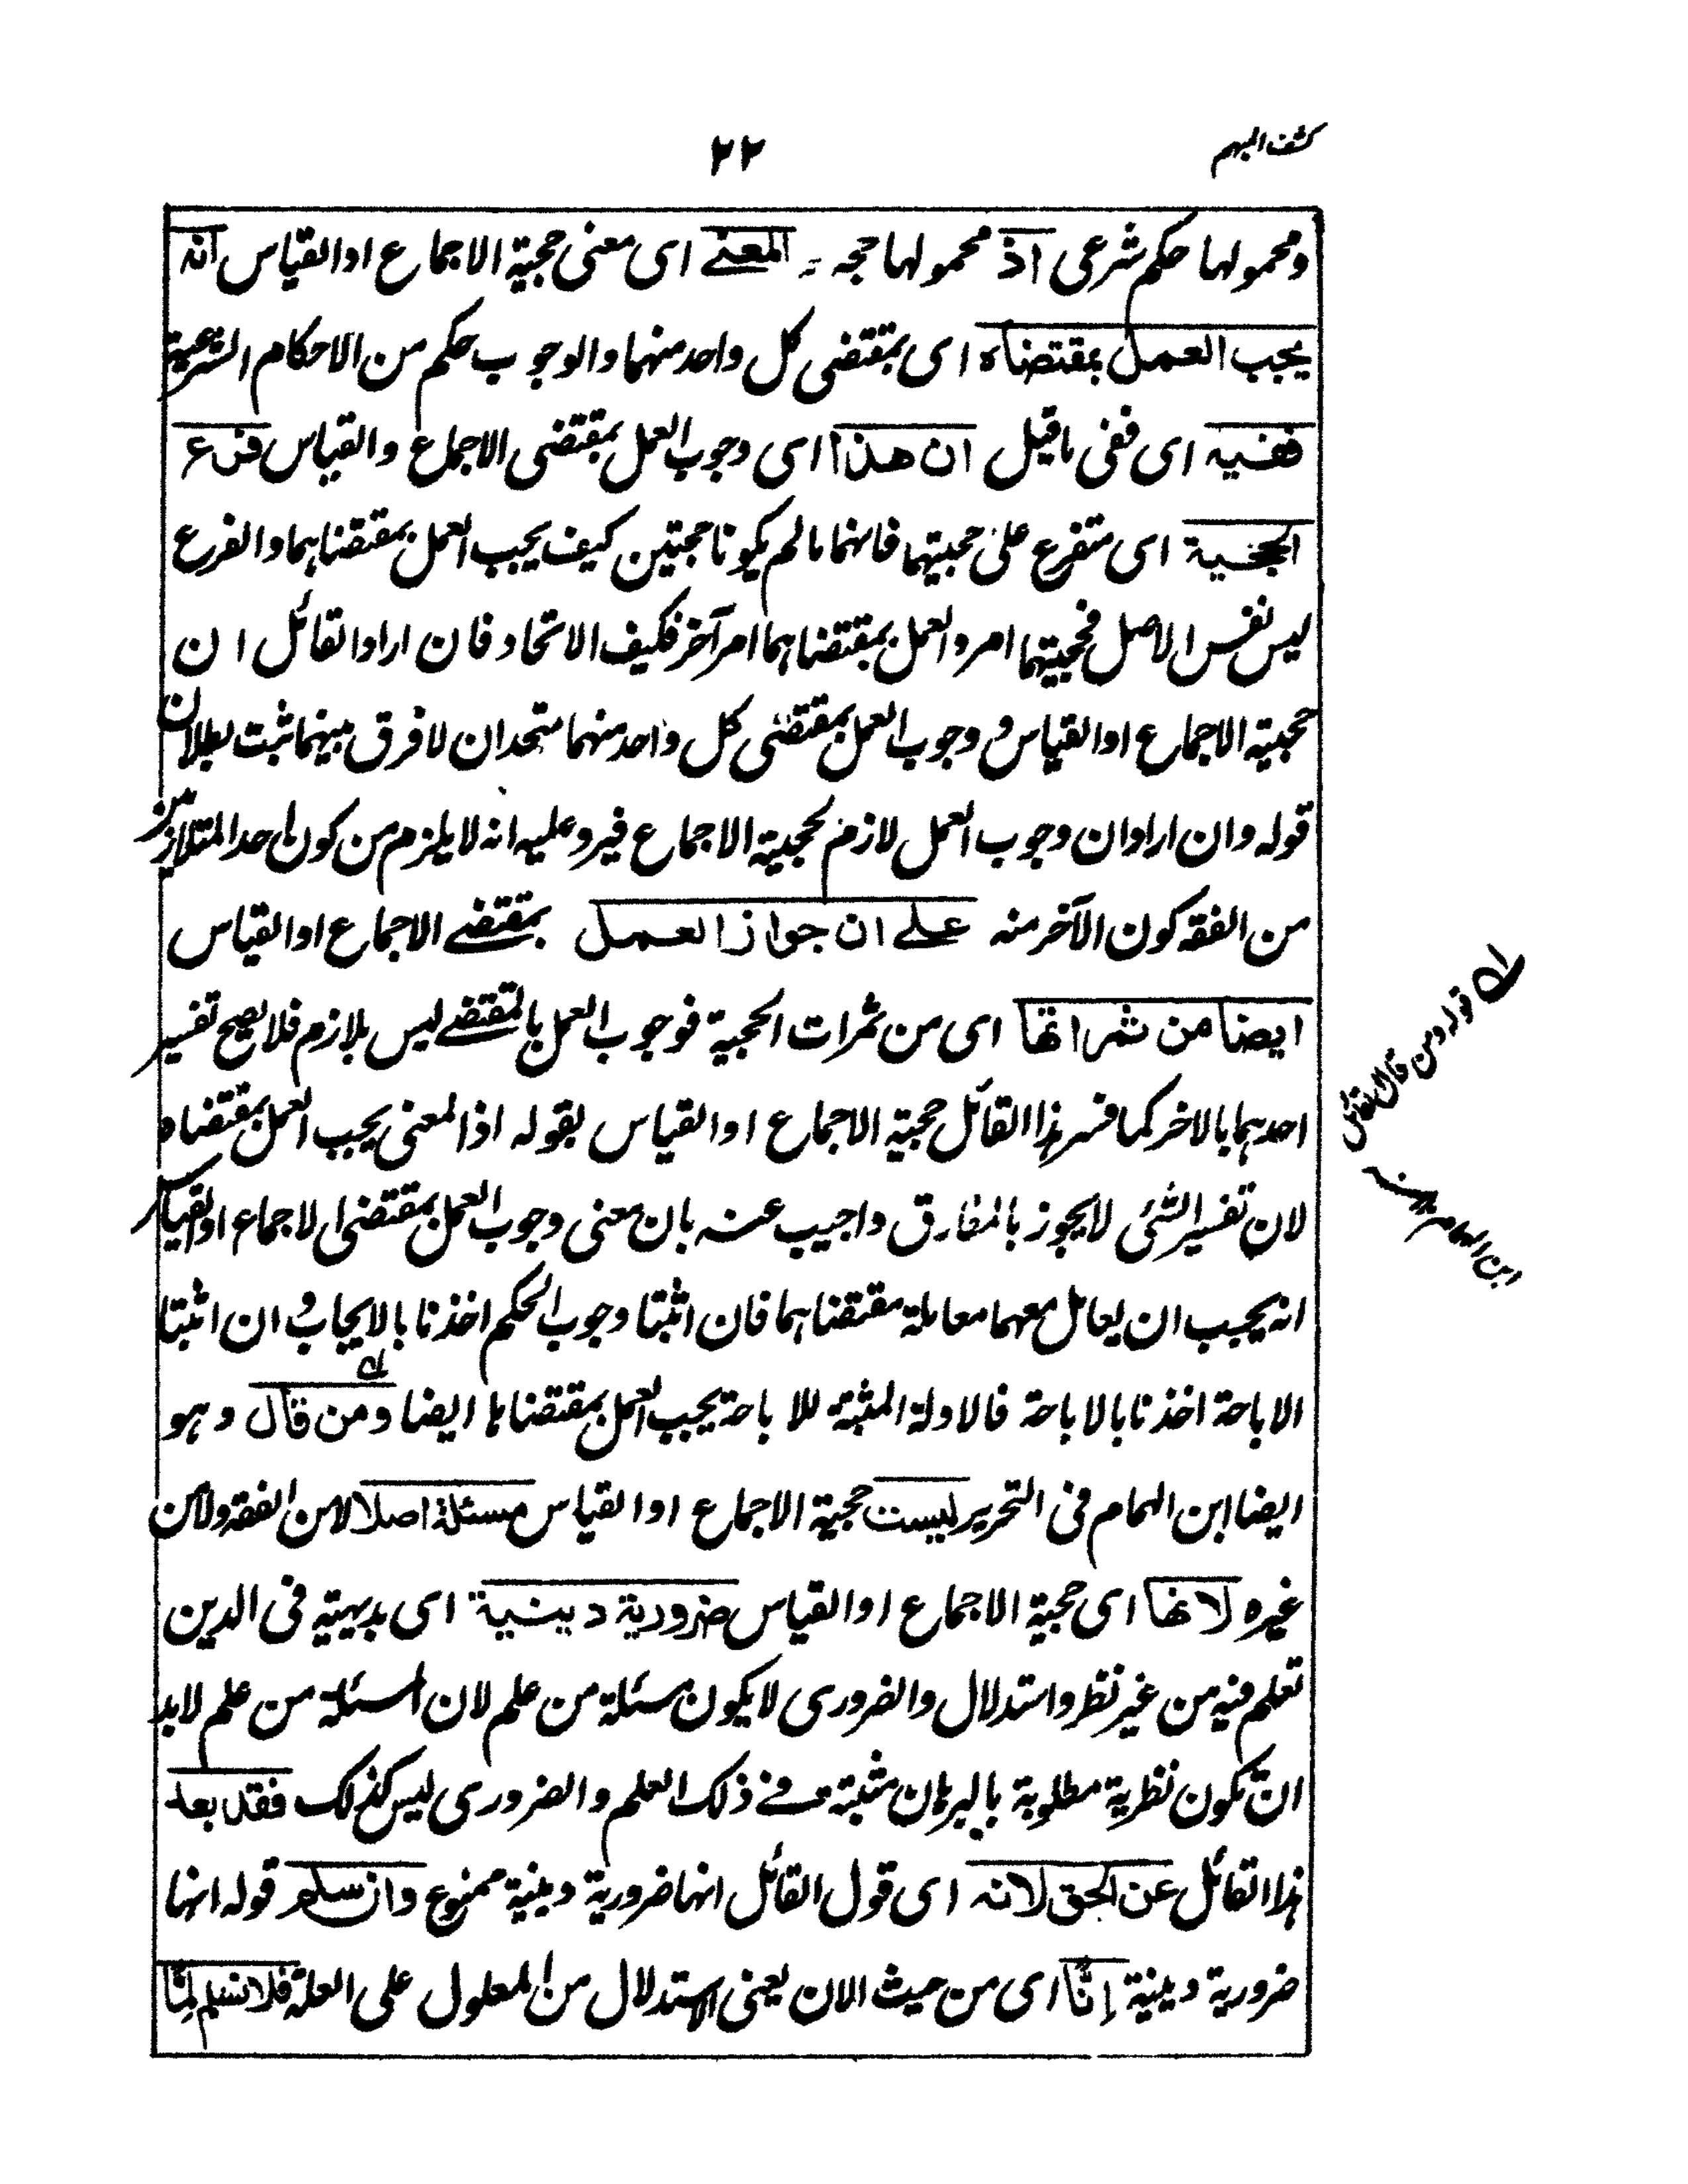 كشف المبهم
٢٢
ومحمولها حكم شرعى اذ محمولها حجه المعنى اى معنى حجية الاجماع او القياس انه
يجب العمل بمقتضاه اى بمقتضى كل واحد منهما والوجوب حكم من الاحكام الشرعية
ففيه اى ففى ما قيل ان هذا اى وجوب العمل بمقتضى الاجماع والقياس فرع
الحجية اى متفرع على حجيتهما فانهما ما لم يكونا حجتين كيف يجب العمل بمقتضاهما والفرع
ليس نفس الاصل فحجيتهما امر والعمل بمقتضاهما امر آخر فكيف الاتحاد فان اراد القائل ان
حجية الاجماع او القياس و وجوب العمل بمقتضى كل واحد منهما متحدان لا فرق بينهما ثبت بطلان
قوله وان اراد ان وجوب العمل لازم لحجية الاجماع فيرد عليه انه لا يلزم من كون احد المتلازمين
من الفقه كون الآخر منه على ان جواز العمل بمقتضى الاجماع او القياس
ايضا من ثمراتها اى من ثمرات الحجية فوجوب العمل بالمقتضى ليس بلازم فلا يصح تفسير
احدهما بالاخر كما فسر هذا القائل حجية الاجماع او القياس بقوله اذ المعنى يجب العمل بمقتضاه
لان تفسير الشئ لا يجوز بالمفارق واجيب عنه بان معنى وجوب العمل بمقتضى الاجماع او القياس
انه يجب ان يعامل معهما معاملة مقتضاهما فان اثبتا وجوب الحكم اخذنا بالايجاب و ان اثبتا
الاباحة اخذنا بالاباحة فالادلة المثبتة للاباحة يجب العمل بمقتضاها ايضا ومن قال وهو
ايضا ابن الهمام فى التحرير ليست حجية الاجماع او القياس مسئلة اصلا لا من الفقه ولا من
غيره لانها اى حجية الاجماع او القياس ضرورية دينية اى بديهية فى الدين
تعلم فيه من غير نظر واستدلال والضرورى لا يكون مسئلة من علم لان المسئلة من علم لابد
ان تكون نظرية مطلوبة بالبرهان مثبتة فى ذلك العلم والضرورى ليس كذلك فقد بعد
هذا القائل عن الحق لانه اى قول القائل انها ضرورية دينية ممنوع وان سلم قوله انها
ضرورية دينية إنّا اى من حيث الان يعنى الاستدلال من المعلول على العلة فلا نسلم لِمّا
قوله ومن قال القائل
ابن الهمام